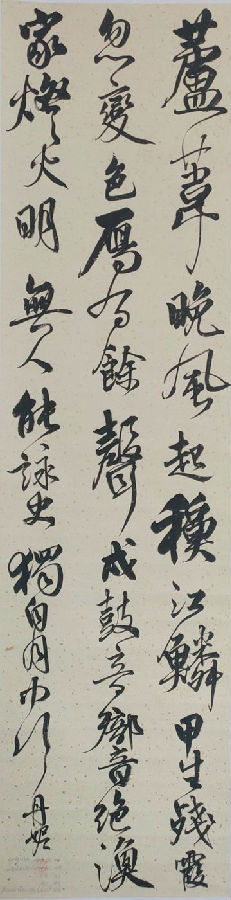 蘆葦晚風起穐江鱗甲生殘霞
忽變色雁有餘聲戍鼓音響音絕漁
家燈火明無人能詠史獨自月中行